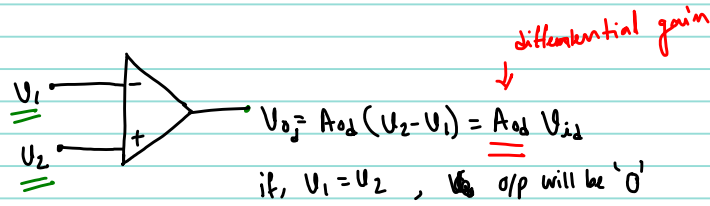 differential gain
V₁
-
V₀d = A₀d (V₂-V₁) = A₀d Vid
+
V₂
if, V₁ = V₂ , o/p will be '0'